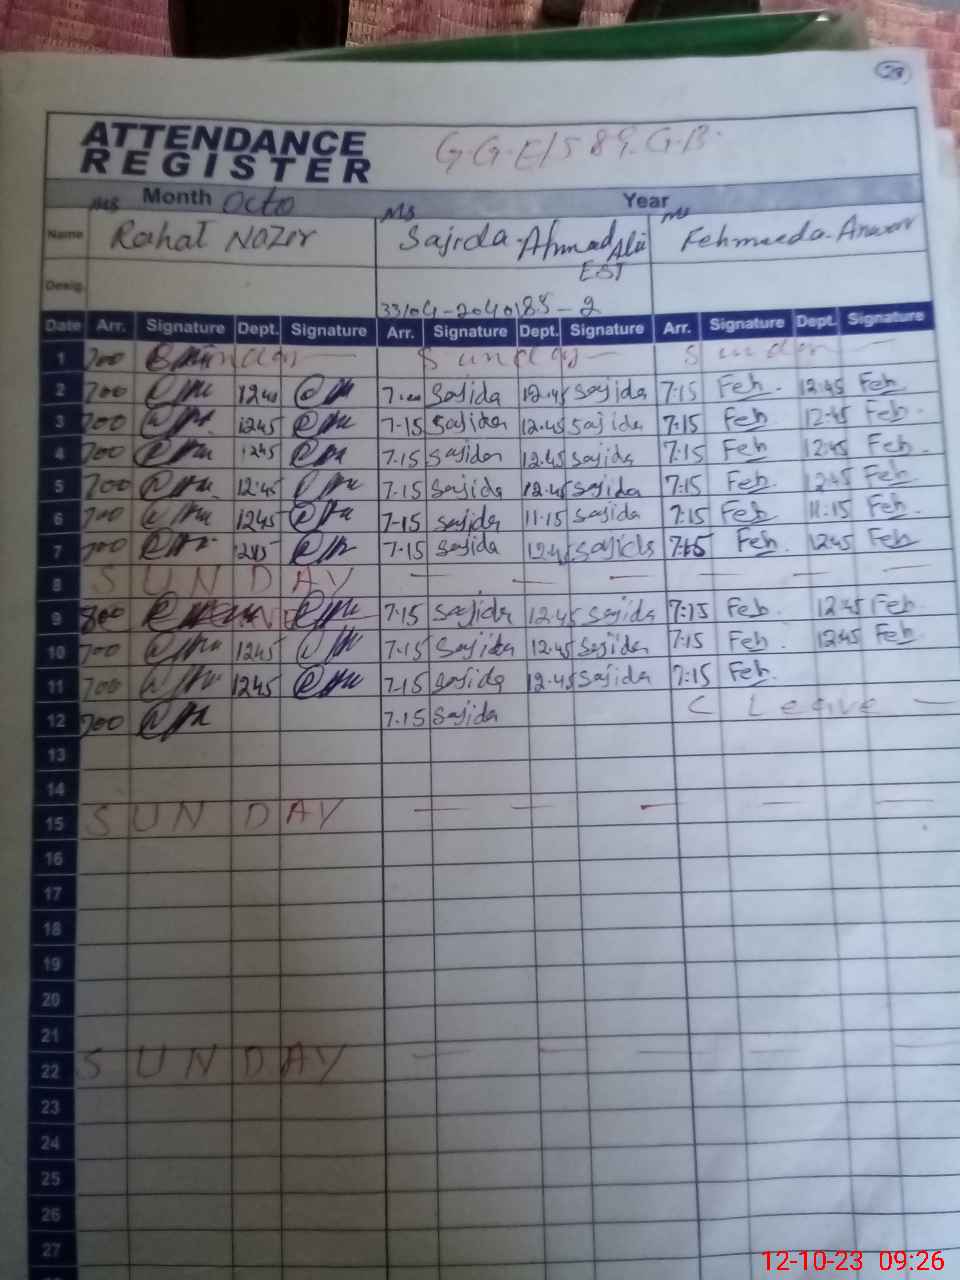 28
ATTENDANCE
REGISTER G.G.E/S 89.G.B.
Ms Month Octo Ms Year Ms
Name Rahat Nazir Sajida Ahmad Ali Fehmeeda Anwar
EST
Desig. 33104-2040185-2
Date Arr. Signature Dept. Signature Arr. Signature Dept. Signature Arr. Signature Dept. Signature
1 700 Sunday — Sunday — Sunday —
2 700 1245 Sajida 12.45 Sajida 7:15 Feh. 12:45 Feh
3 700 1245 7-15 Sajida 12.45 Sajida 7:15 Feh 12:45 Feh.
4 700 1245 7.15 Sajida 12.45 Sajida 7:15 Feh 12:45 Feh.
5 700 12:45 7.15 Sajida 12.45 Sajida 7:15 Feh. 12:45 Feh
6 700 1245 7-15 Sajida 11-15 Sajida 7:15 Feh 11:15 Feh.
7 700 1245 7-15 Sajida 12.45 Sajida 7:15 Feh. 1245 Feh
8 SUNDAY — — — — — —
9 7:15 Sajida 12.45 Sajida 7:15 Feh. 12:45 Feh.
10 700 1245 7.15 Sajida 12.45 Sajida 7:15 Feh. 12:45 Feh
11 700 1245 7-15 Sajida 12.45 Sajida 7:15 Feh.
12 700 7.15 Sajida C Leave —
13
14
15 SUNDAY — — — — —
16
17
18
19
20
21
22 SUNDAY — — — — —
23
24
25
26
27
12-10-23 09:26